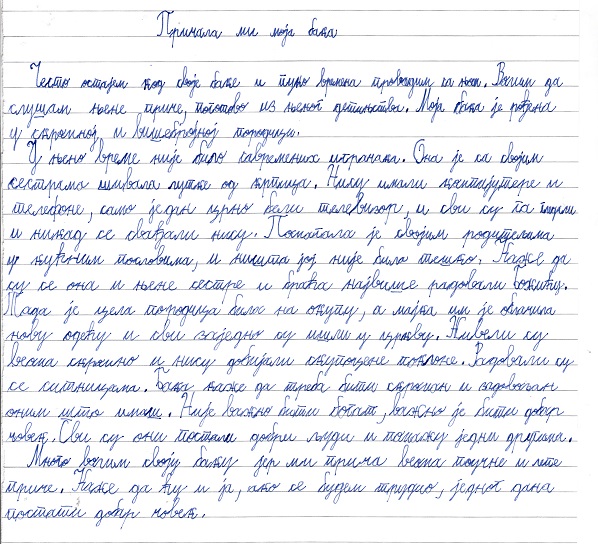 Причала ми моја бака
Често остајем код своје баке и пуно времена проводим са њом. Волим да
слушам њене приче, поготово из њеног детињства. Моја бака је рођена
у скромној, и вишебројној породици.
У њено време није било савремених играчака. Она је са својим
сестрама шивала лутке од крпица. Нису имали компјутере и
телефоне, само један црно бели телевизор, и сви су га гледали
и никад се свађали нису. Помагала је својим родитељима
у кућним пословима, и ништа јој није било тешко. Каже да
су се она и њене сестре и браћа највише радовали Божићу.
Тада је цела породица била на окупу, а мајка им је облачила
нову одећу и сви заједно су ишли у цркву. Живели су
веома скромно и нису добијали скупоцене поклоне. Радовали су
се ситницама. Бака каже да треба бити скроман и задовољан
оним што имаш. Није важно бити богат, важно је бити добар
човек. Сви су они постали добри људи и помажу једни другима.
Много волим своју баку јер ми прича веома поучне и лепе
приче. Каже да ћу и ја, ако се будем трудио, једног дана
постати добар човек.